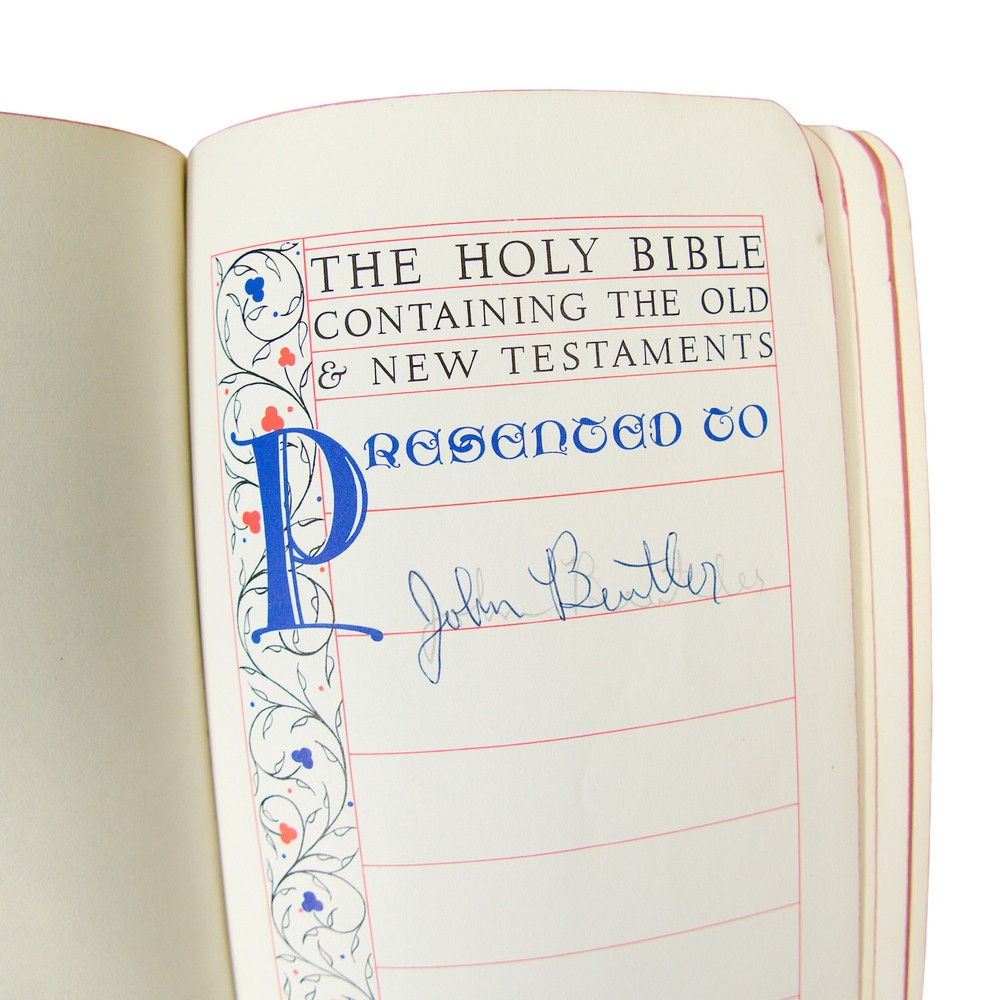 THE HOLY BIBLE
CONTAINING THE OLD
& NEW TESTAMENTS
PRESENTED TO
John Beutler